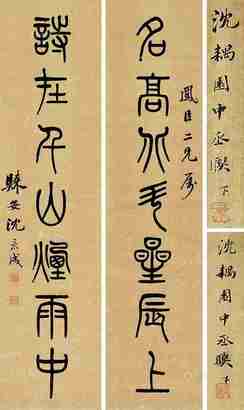 沈耦園中丞聯
沈耦園中丞聯
鳳臣二兄屬
名高北斗星辰上
詩在千山煙雨中
歸安沈秉成